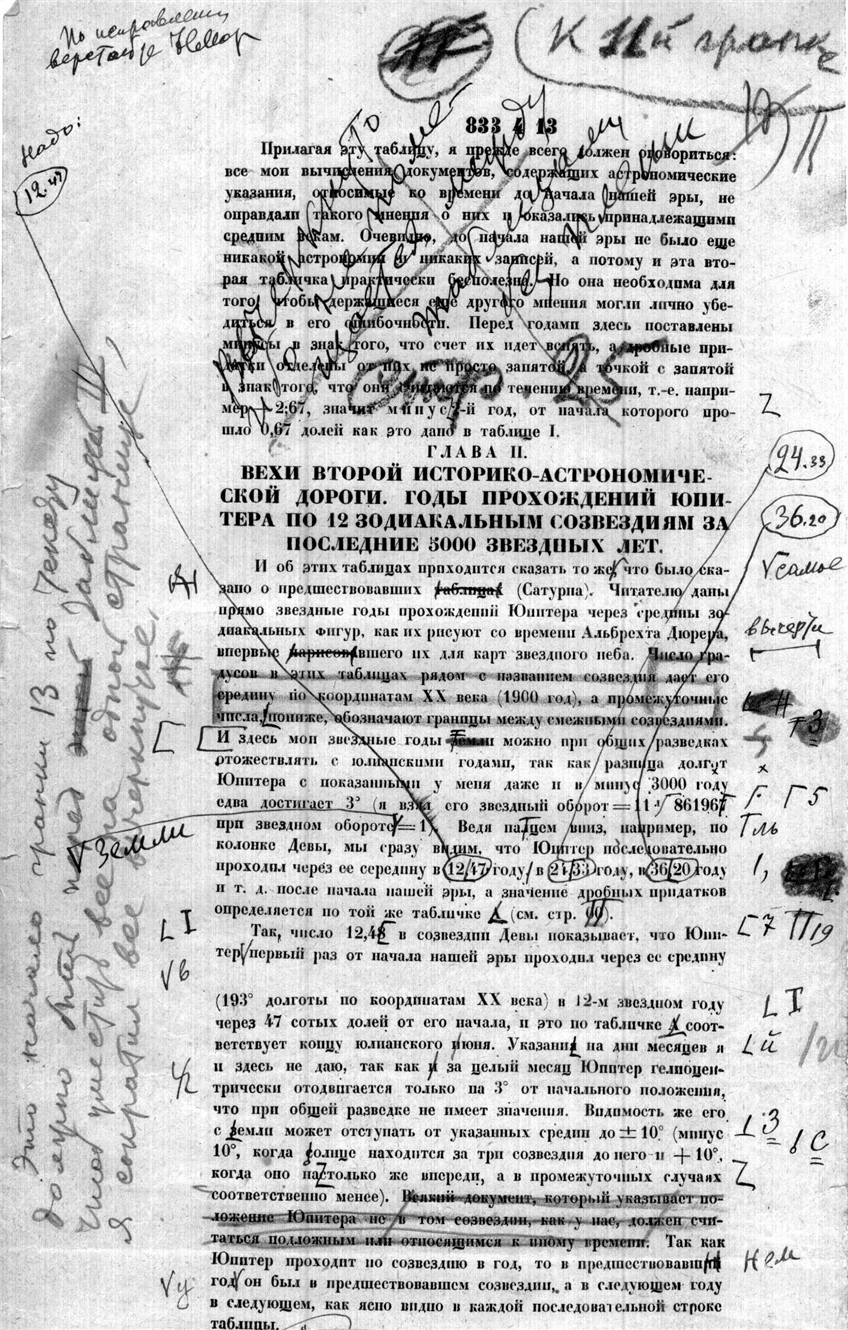 По исправлении
верстать
К 11й гранке
Надо:
12.47
833 4 13
Прилагая эту таблицу, я прежде всего должен оговориться:
все мои вычисления документов, содержащих астрономические
указания, относимые ко времени до начала нашей эры, не
оправдали такого мнения о них и оказались принадлежащими
средним векам. Очевидно, до начала нашей эры не было еще
никакой астрономии и никаких записей, а потому и эта вто-
рая табличка практически бесполезна. Но она необходима для
того, чтобы держащиеся еще другого мнения могли лично убе-
диться в его ошибочности. Перед годами здесь поставлены
минусы в знак того, что счет их идет вспять, а дробные при-
датки отделены от них не просто запятой, а точкой с запятой
в знак того, что они считаются по течению времени, т.-е. напри-
мер — 2;67, значит минус 2-й год, от начала которого про-
шло 0,67 долей как это дано в таблице I.
стр. 25
ГЛАВА II.
ВЕХИ ВТОРОЙ ИСТОРИКО-АСТРОНОМИЧЕ-
СКОЙ ДОРОГИ. ГОДЫ ПРОХОЖДЕНИЙ ЮПИ-
ТЕРА ПО 12 ЗОДИАКАЛЬНЫМ СОЗВЕЗДИЯМ ЗА
ПОСЛЕДНИЕ 5000 ЗВЕЗДНЫХ ЛЕТ.
24.33
36.20
И об этих таблицах приходится сказать то же, что было ска-
зано о предшествовавших таблицах (Сатурна). Читателю даны
прямо звездные годы прохождений Юпитера через средины зо-
диакальных фигур, как их рисуют со времени Альбрехта Дюрера,
впервые нарисовавшего их для карт звездного неба. Число гра-
дусов в этих таблицах рядом с названием созвездия дает его
средину по координатам XX века (1900 год), а промежуточные
числа, пониже, обозначают границы между смежными созвездиями.
И здесь мои звездные годы Земли можно при общих разведках
отожествлять с юлианскими годами, так как разница долгот
Юпитера с показанными у меня даже и в минус 3000 году
едва достигает 3° (я взял его звездный оборот = 11 861967
при звездном обороте = 1). Ведя пальцем вниз, например, по
колонке Девы, мы сразу видим, что Юпитер последовательно
проходил через ее середину в 12/47 году, в 24/33 году, в 36/20 году
и т. д. после начала нашей эры, а значение дробных придатков
определяется по той же табличке (см. стр. 00).
Так, число 12,48 в созвездии Девы показывает, что Юпи-
тер первый раз от начала нашей эры проходил через ее средину
(193° долготы по координатам XX века) в 12-м звездном году
через 47 сотых долей от его начала, и это по табличке соот-
ветствует концу юлианского июня. Указаний на дни месяцев я
и здесь не даю, так как и за целый месяц Юпитер гелиоцен-
трически отодвигается только на 3° от начального положения,
что при общей разведке не имеет значения. Видимость же его
с Земли может отступать от указанных средин до ± 10° (минус
10°, когда солнце находится за три созвездия до него и + 10°,
когда оно настолько же впереди, а в промежуточных случаях
соответственно менее). Всякий документ, который указывает по-
ложение Юпитера не в том созвездии, как у нас, должен счи-
таться подложным или относящимся к иному времени. Так как
Юпитер проходит по созвездию в год, то в предшествовавший
год он был в предшествовавшем созвездии, а в следующем году
в следующем, как ясно видно в каждой последовательной строке
таблицы.
самое
вычерти
Земли
нем
Это начало гранки 13 по тексту
должно быть перед таблицей III
чтоб уместить все на одной странице
Я сократил все вычеркнутое.